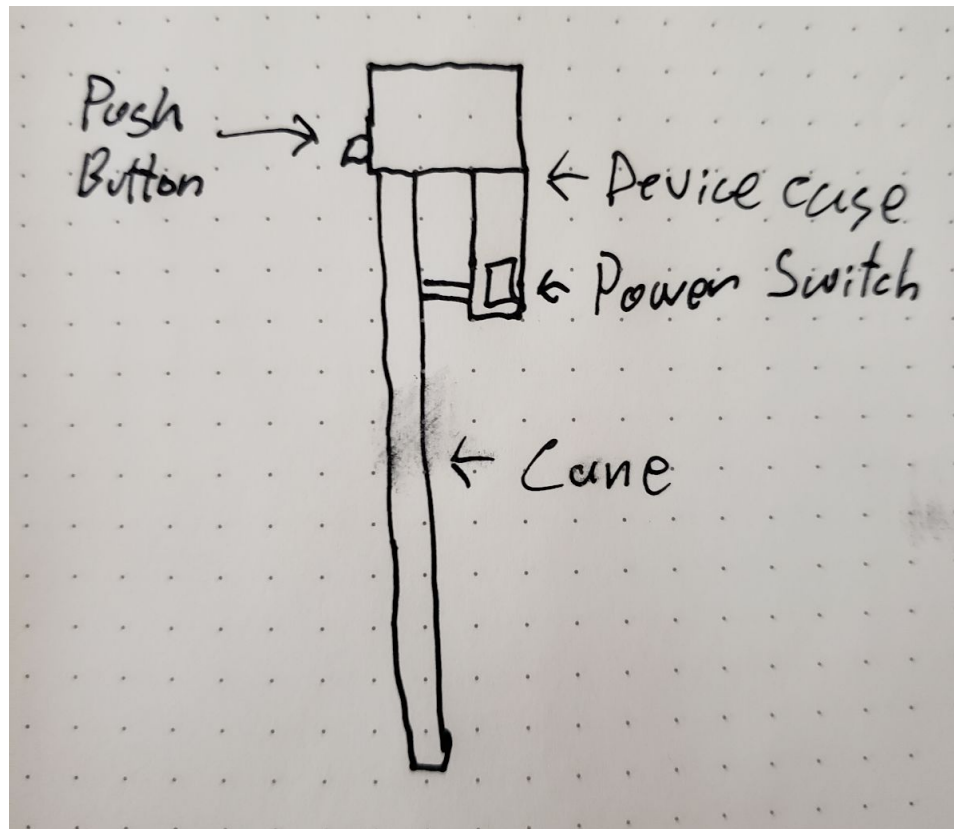 Push
Button
Device case
Power Switch
Cane